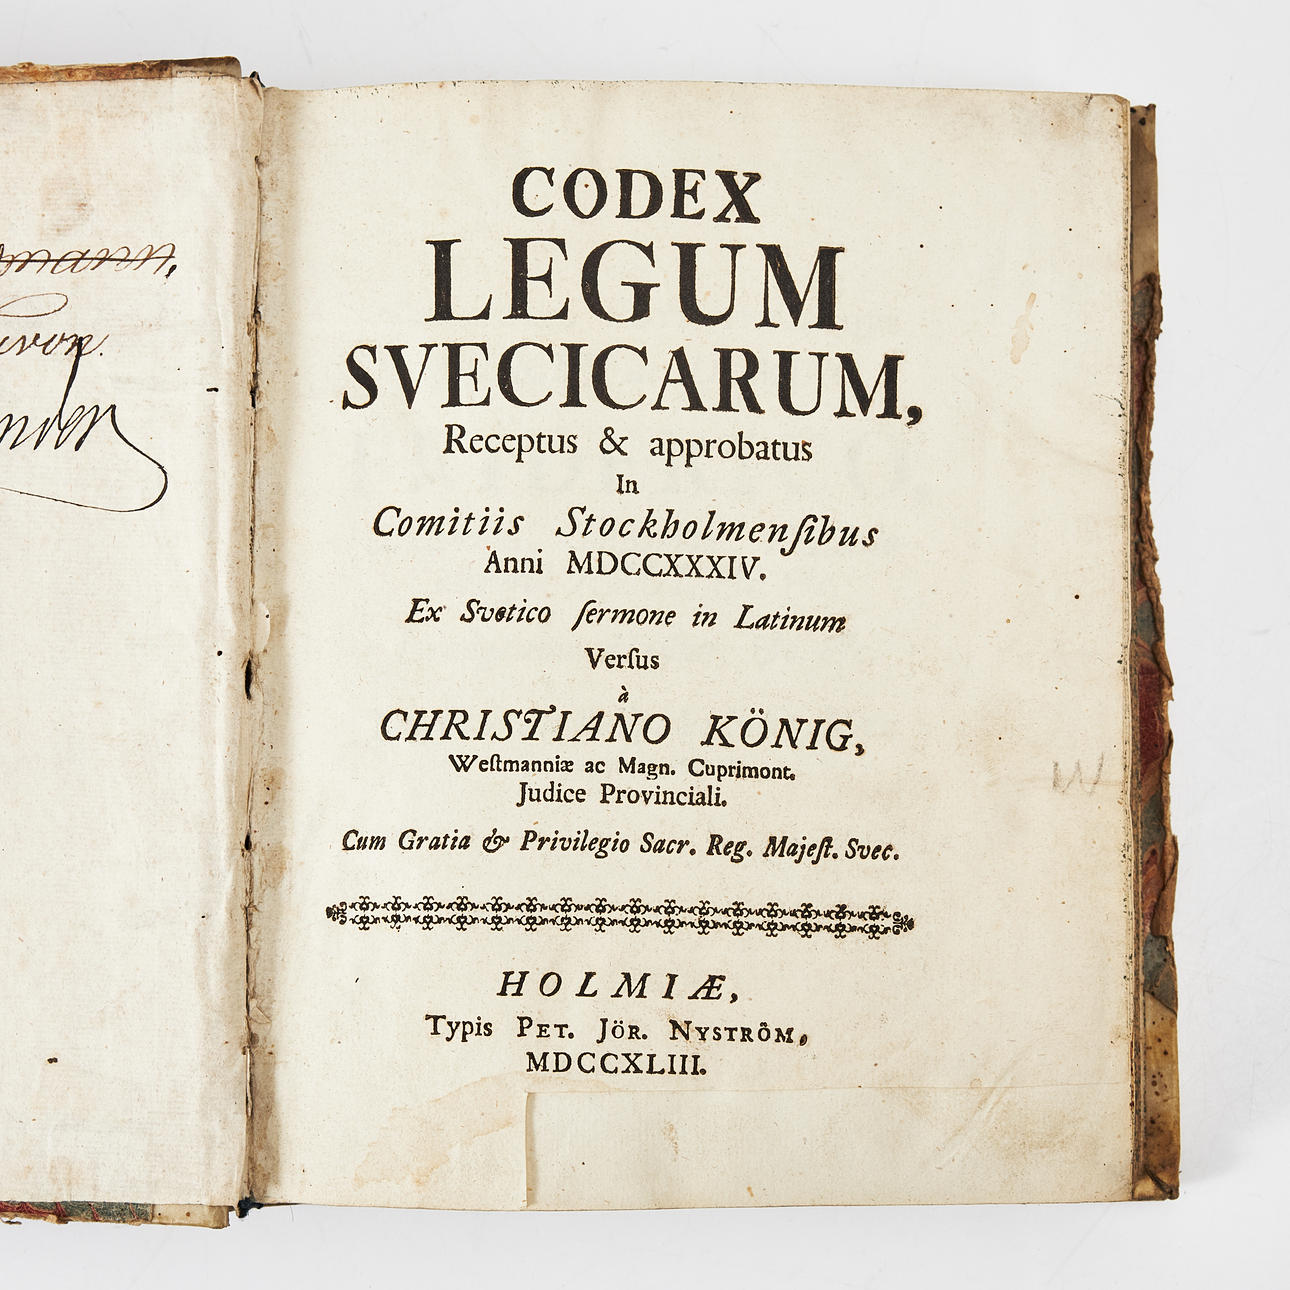 CODEX
LEGUM
SVECICARUM,
Receptus & approbatus
In
Comitiis Stockholmenſibus
Anni MDCCXXXIV.
Ex Svetico ſermone in Latinum
Verſus
à
CHRISTIANO KÖNIG,
Weſtmanniæ ac Magn. Cuprimont.
Judice Provinciali.
Cum Gratia & Privilegio Sacr. Reg. Majeſt. Svec.
HOLMIÆ,
Typis PET. JÖR. NYSTRÖM,
MDCCXLIII.